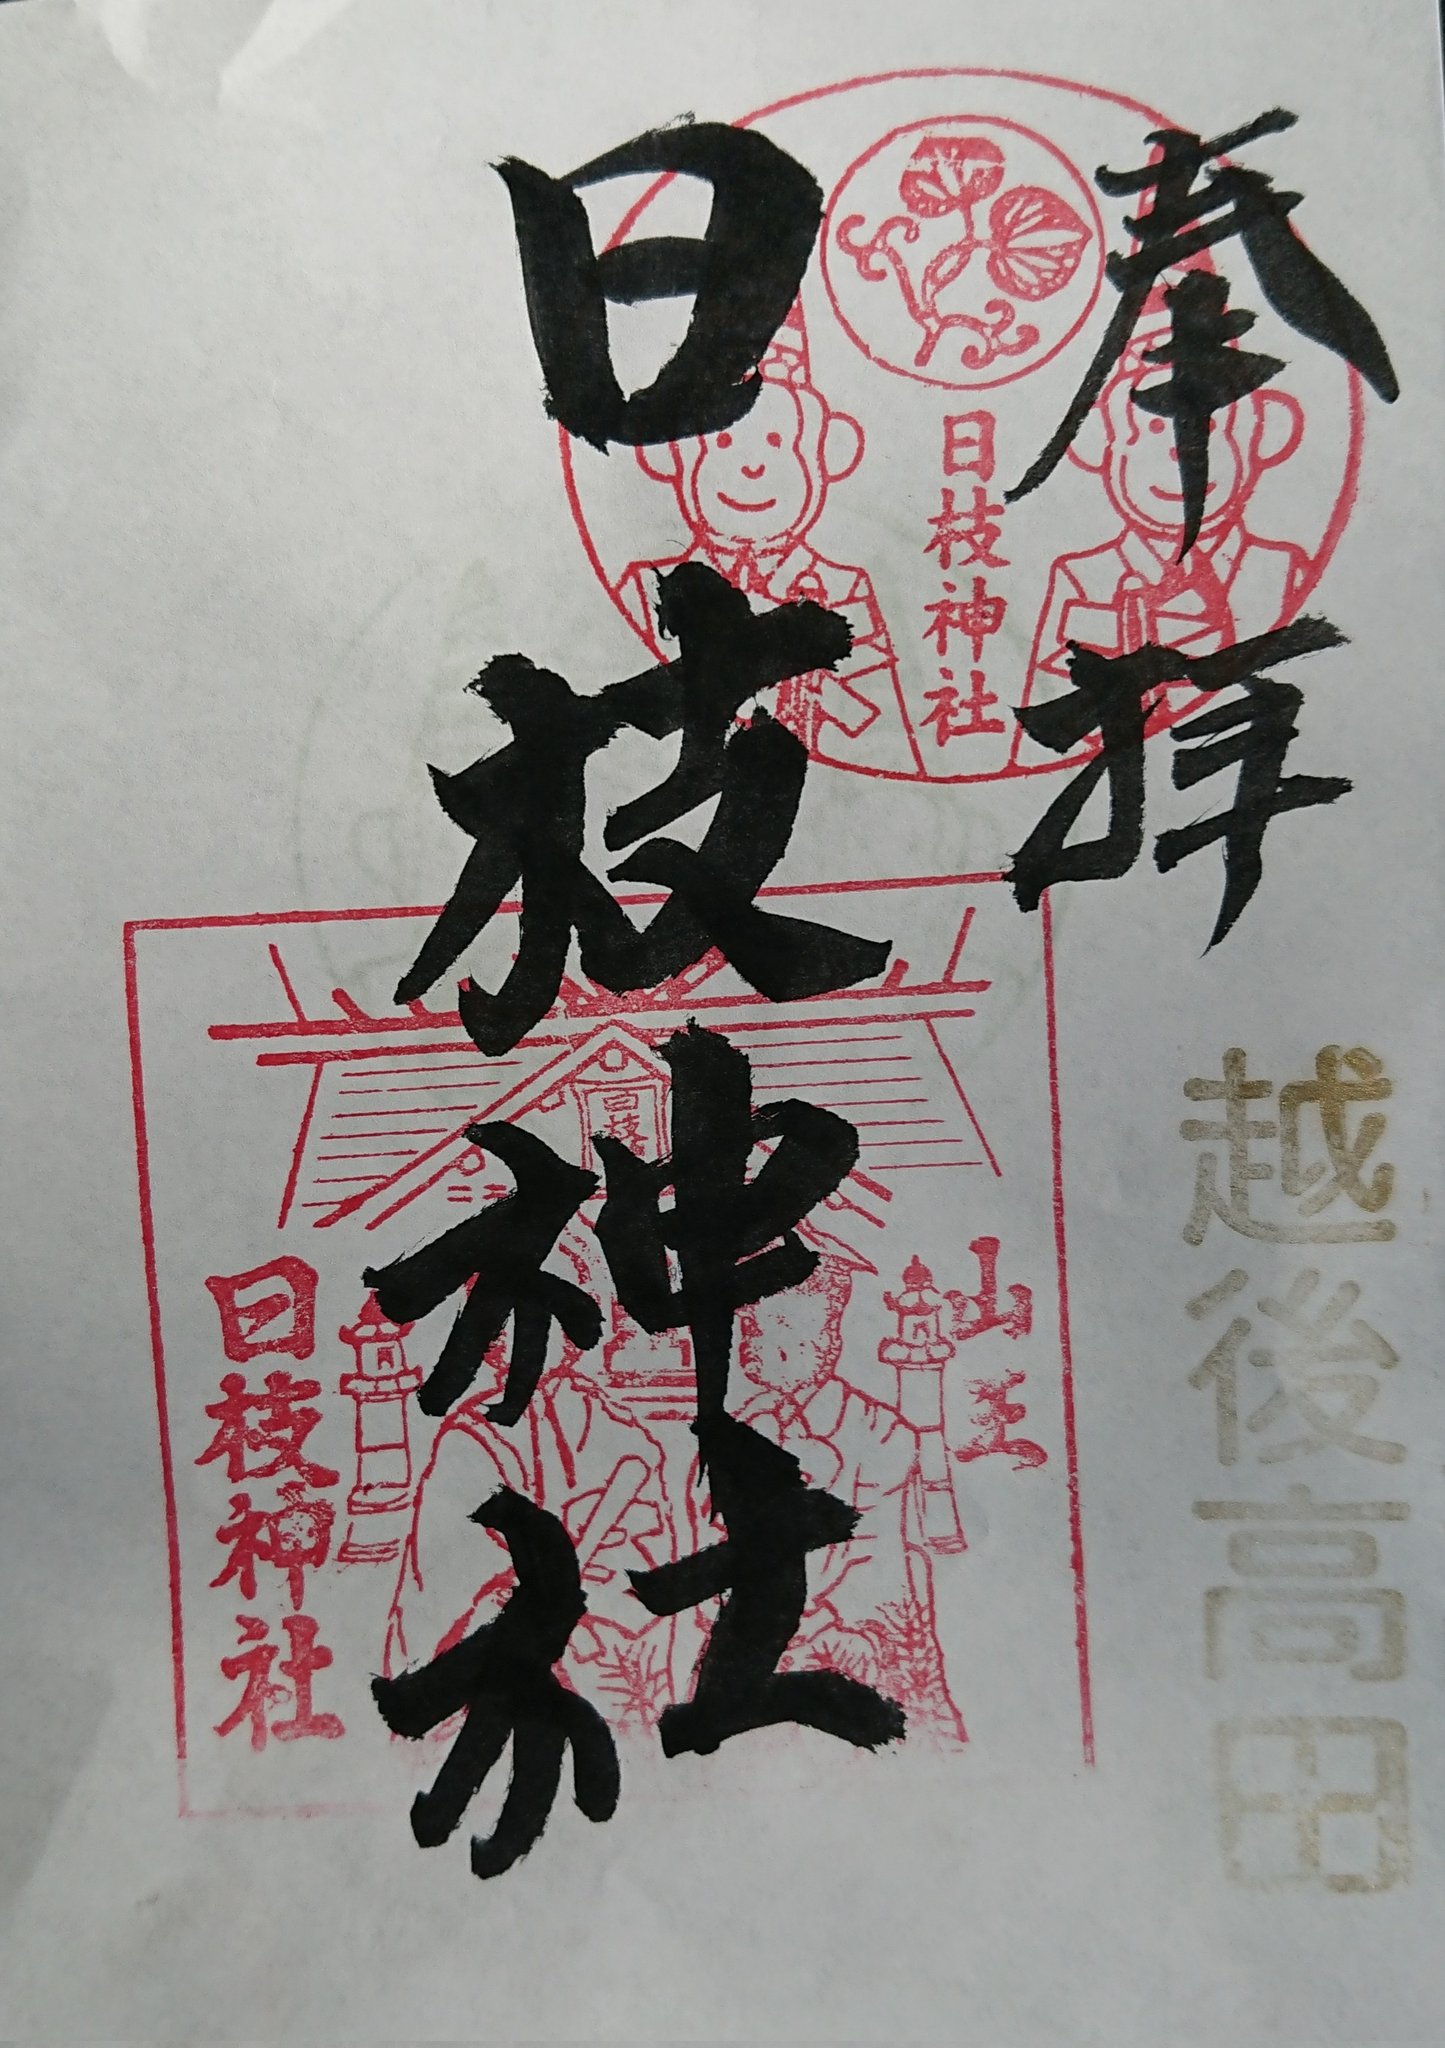 奉拝
越後高田
日枝神社
日枝神社
日枝
山王
日枝神社